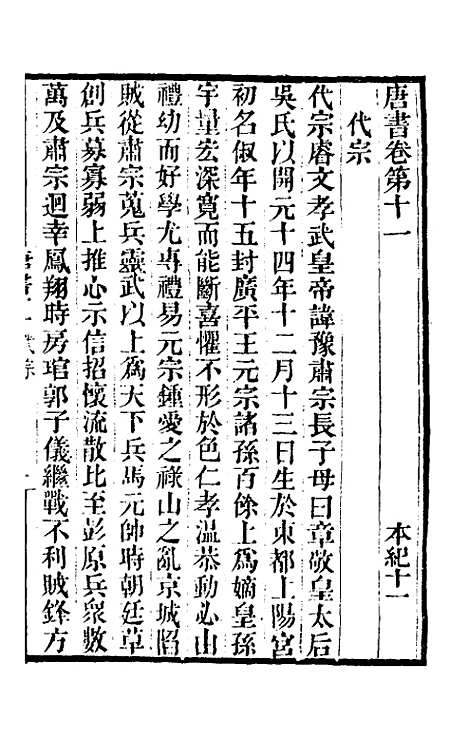 唐書卷第十一 本紀十一
代宗
代宗睿文孝武皇帝諱豫肅宗長子母曰章敬皇太后
吳氏以開元十四年十二月十三日生於東都上陽宮
初名俶年十五封廣平王元宗諸孫百餘上爲嫡皇孫
宇量宏深寬而能斷喜懼不形於色仁孝溫恭動必由
禮幼而好學尤專禮易元宗鍾愛之祿山之亂京城陷
賊從肅宗蒐兵靈武以上爲天下兵馬元帥時朝廷草
創兵募寡弱上推心示信招懷流散比至彭原兵衆數
萬及肅宗迴幸鳳翔時房琯郭子儀繼戰不利賊鋒方